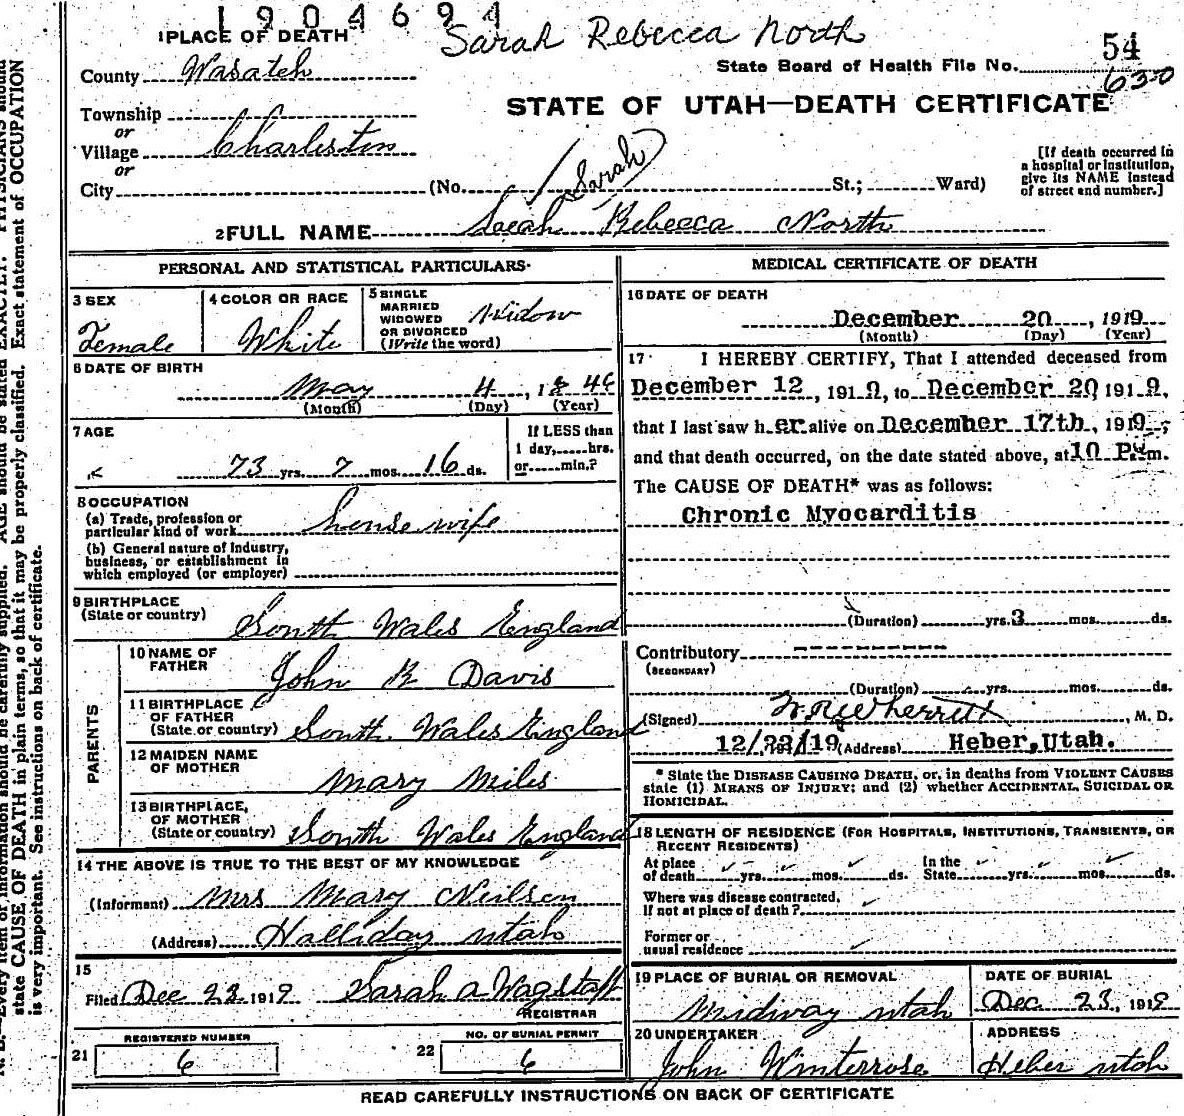 1904694
Sarah Rebecca North
1 PLACE OF DEATH
54
County Wasatch
State Board of Health File No. 630
Township
STATE OF UTAH—DEATH CERTIFICATE
or
Village Charleston
or
City (No. St.; Ward)
[If death occurred in a hospital or institution, give its NAME instead of street and number.]
(Sarah)
2 FULL NAME Sarah Rebecca North
PERSONAL AND STATISTICAL PARTICULARS
3 SEX
Female
4 COLOR OR RACE
White
5 SINGLE
MARRIED
WIDOWED
OR DIVORCED
(Write the word)
Widow
6 DATE OF BIRTH
May 4, 1846
(Month) (Day) (Year)
7 AGE
73 yrs. 7 mos. 16 ds.
If LESS than
1 day, hrs.
or min.?
8 OCCUPATION
(a) Trade, profession or
particular kind of work house wife
(b) General nature of industry,
business, or establishment in
which employed (or employer)
9 BIRTHPLACE
(State or country) South Wales England
PARENTS
10 NAME OF
FATHER John R Davis
11 BIRTHPLACE
OF FATHER
(State or country) South Wales England
12 MAIDEN NAME
OF MOTHER Mary Miles
13 BIRTHPLACE,
OF MOTHER
(State or country) South Wales England
14 THE ABOVE IS TRUE TO THE BEST OF MY KNOWLEDGE
(Informant) Mrs Mary Neilsen
(Address) Halliday utah
15
Filed Dec 23 1919 Sarah A Wagstaff
REGISTRAR
21 REGISTERED NUMBER
6
22 NO. OF BURIAL PERMIT
6
MEDICAL CERTIFICATE OF DEATH
16 DATE OF DEATH
December 20, 1919
(Month) (Day) (Year)
17 I HEREBY CERTIFY, That I attended deceased from
December 12, 1919, to December 20, 1919,
that I last saw her alive on December 17th, 1919,
and that death occurred, on the date stated above, at 10 P. m.
The CAUSE OF DEATH* was as follows:
Chronic Myocarditis
(Duration) yrs. 3 mos. ds.
Contributory
(SECONDARY)
(Duration) yrs. mos. ds.
(Signed) Wherritt, M. D.
12/22/19 (Address) Heber, Utah.
* State the DISEASE CAUSING DEATH, or, in deaths from VIOLENT CAUSES
state (1) MEANS OF INJURY; and (2) whether ACCIDENTAL, SUICIDAL OR
HOMICIDAL.
18 LENGTH OF RESIDENCE (FOR HOSPITALS, INSTITUTIONS, TRANSIENTS, OR
RECENT RESIDENTS)
At place
of death yrs. mos. ds.
In the
State yrs. mos. ds.
Where was disease contracted,
If not at place of death?
Former or
usual residence
19 PLACE OF BURIAL OR REMOVAL
Midway utah
DATE OF BURIAL
Dec. 23, 1919
20 UNDERTAKER
John Winterrose
ADDRESS
Heber utah
READ CAREFULLY INSTRUCTIONS ON BACK OF CERTIFICATE
N. B.—Every item of information should be carefully supplied. AGE should be stated EXACTLY. PHYSICIANS should
state CAUSE OF DEATH in plain terms, so that it may be properly classified. Exact statement of OCCUPATION
is very important. See instructions on back of certificate.